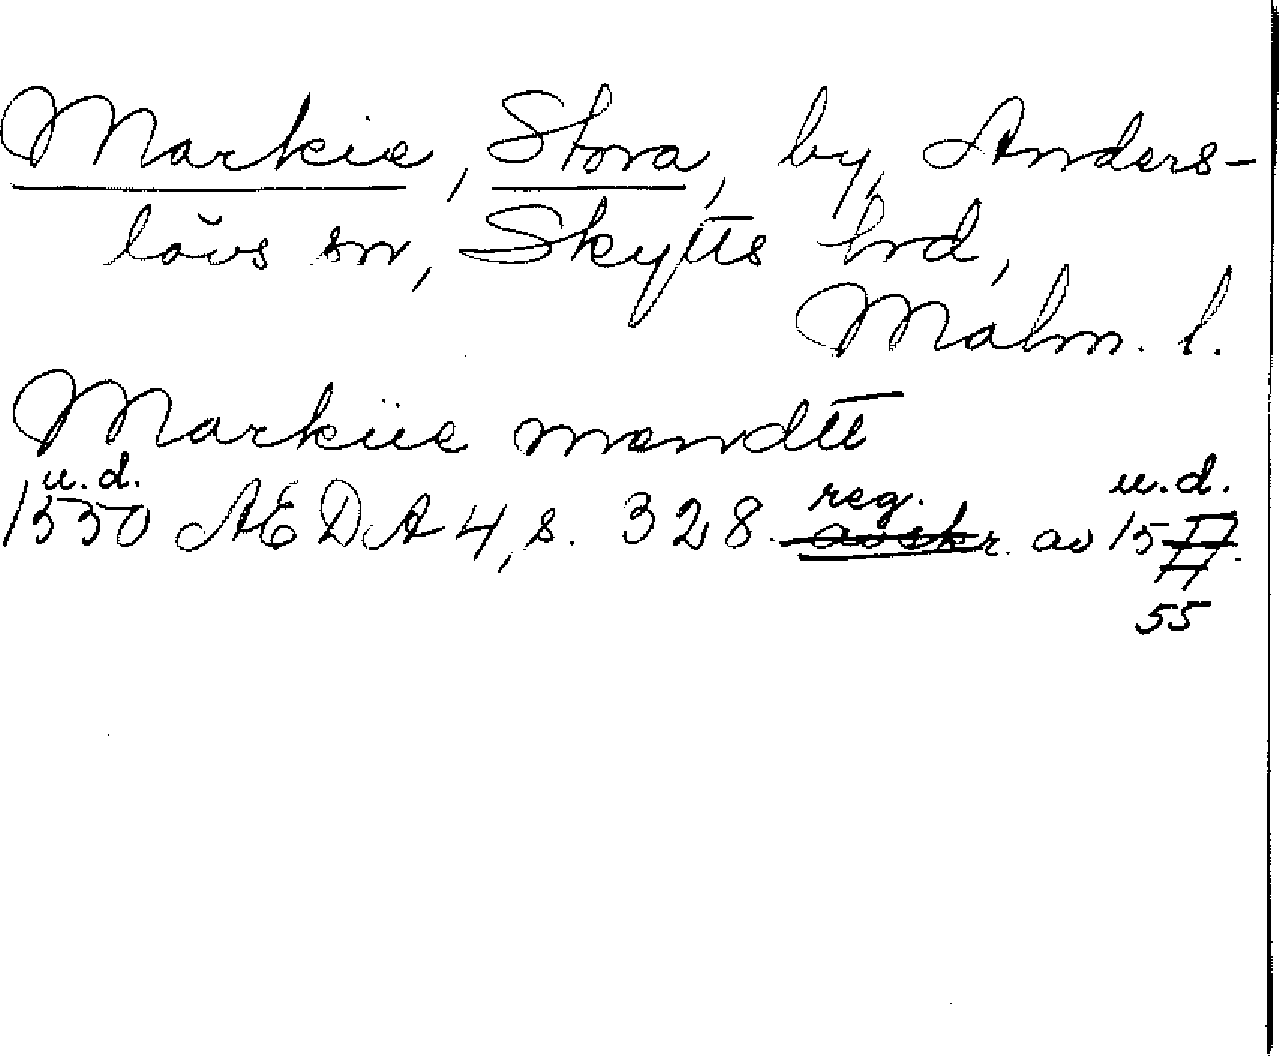 Markie, Stora, by, Anders-
lövs sn, Skytts hrd,
Malm. l.
Markiie mandtt
u.d. reg. u.d.
1550 AEDA 4, s. 328. avskr. av 15
55